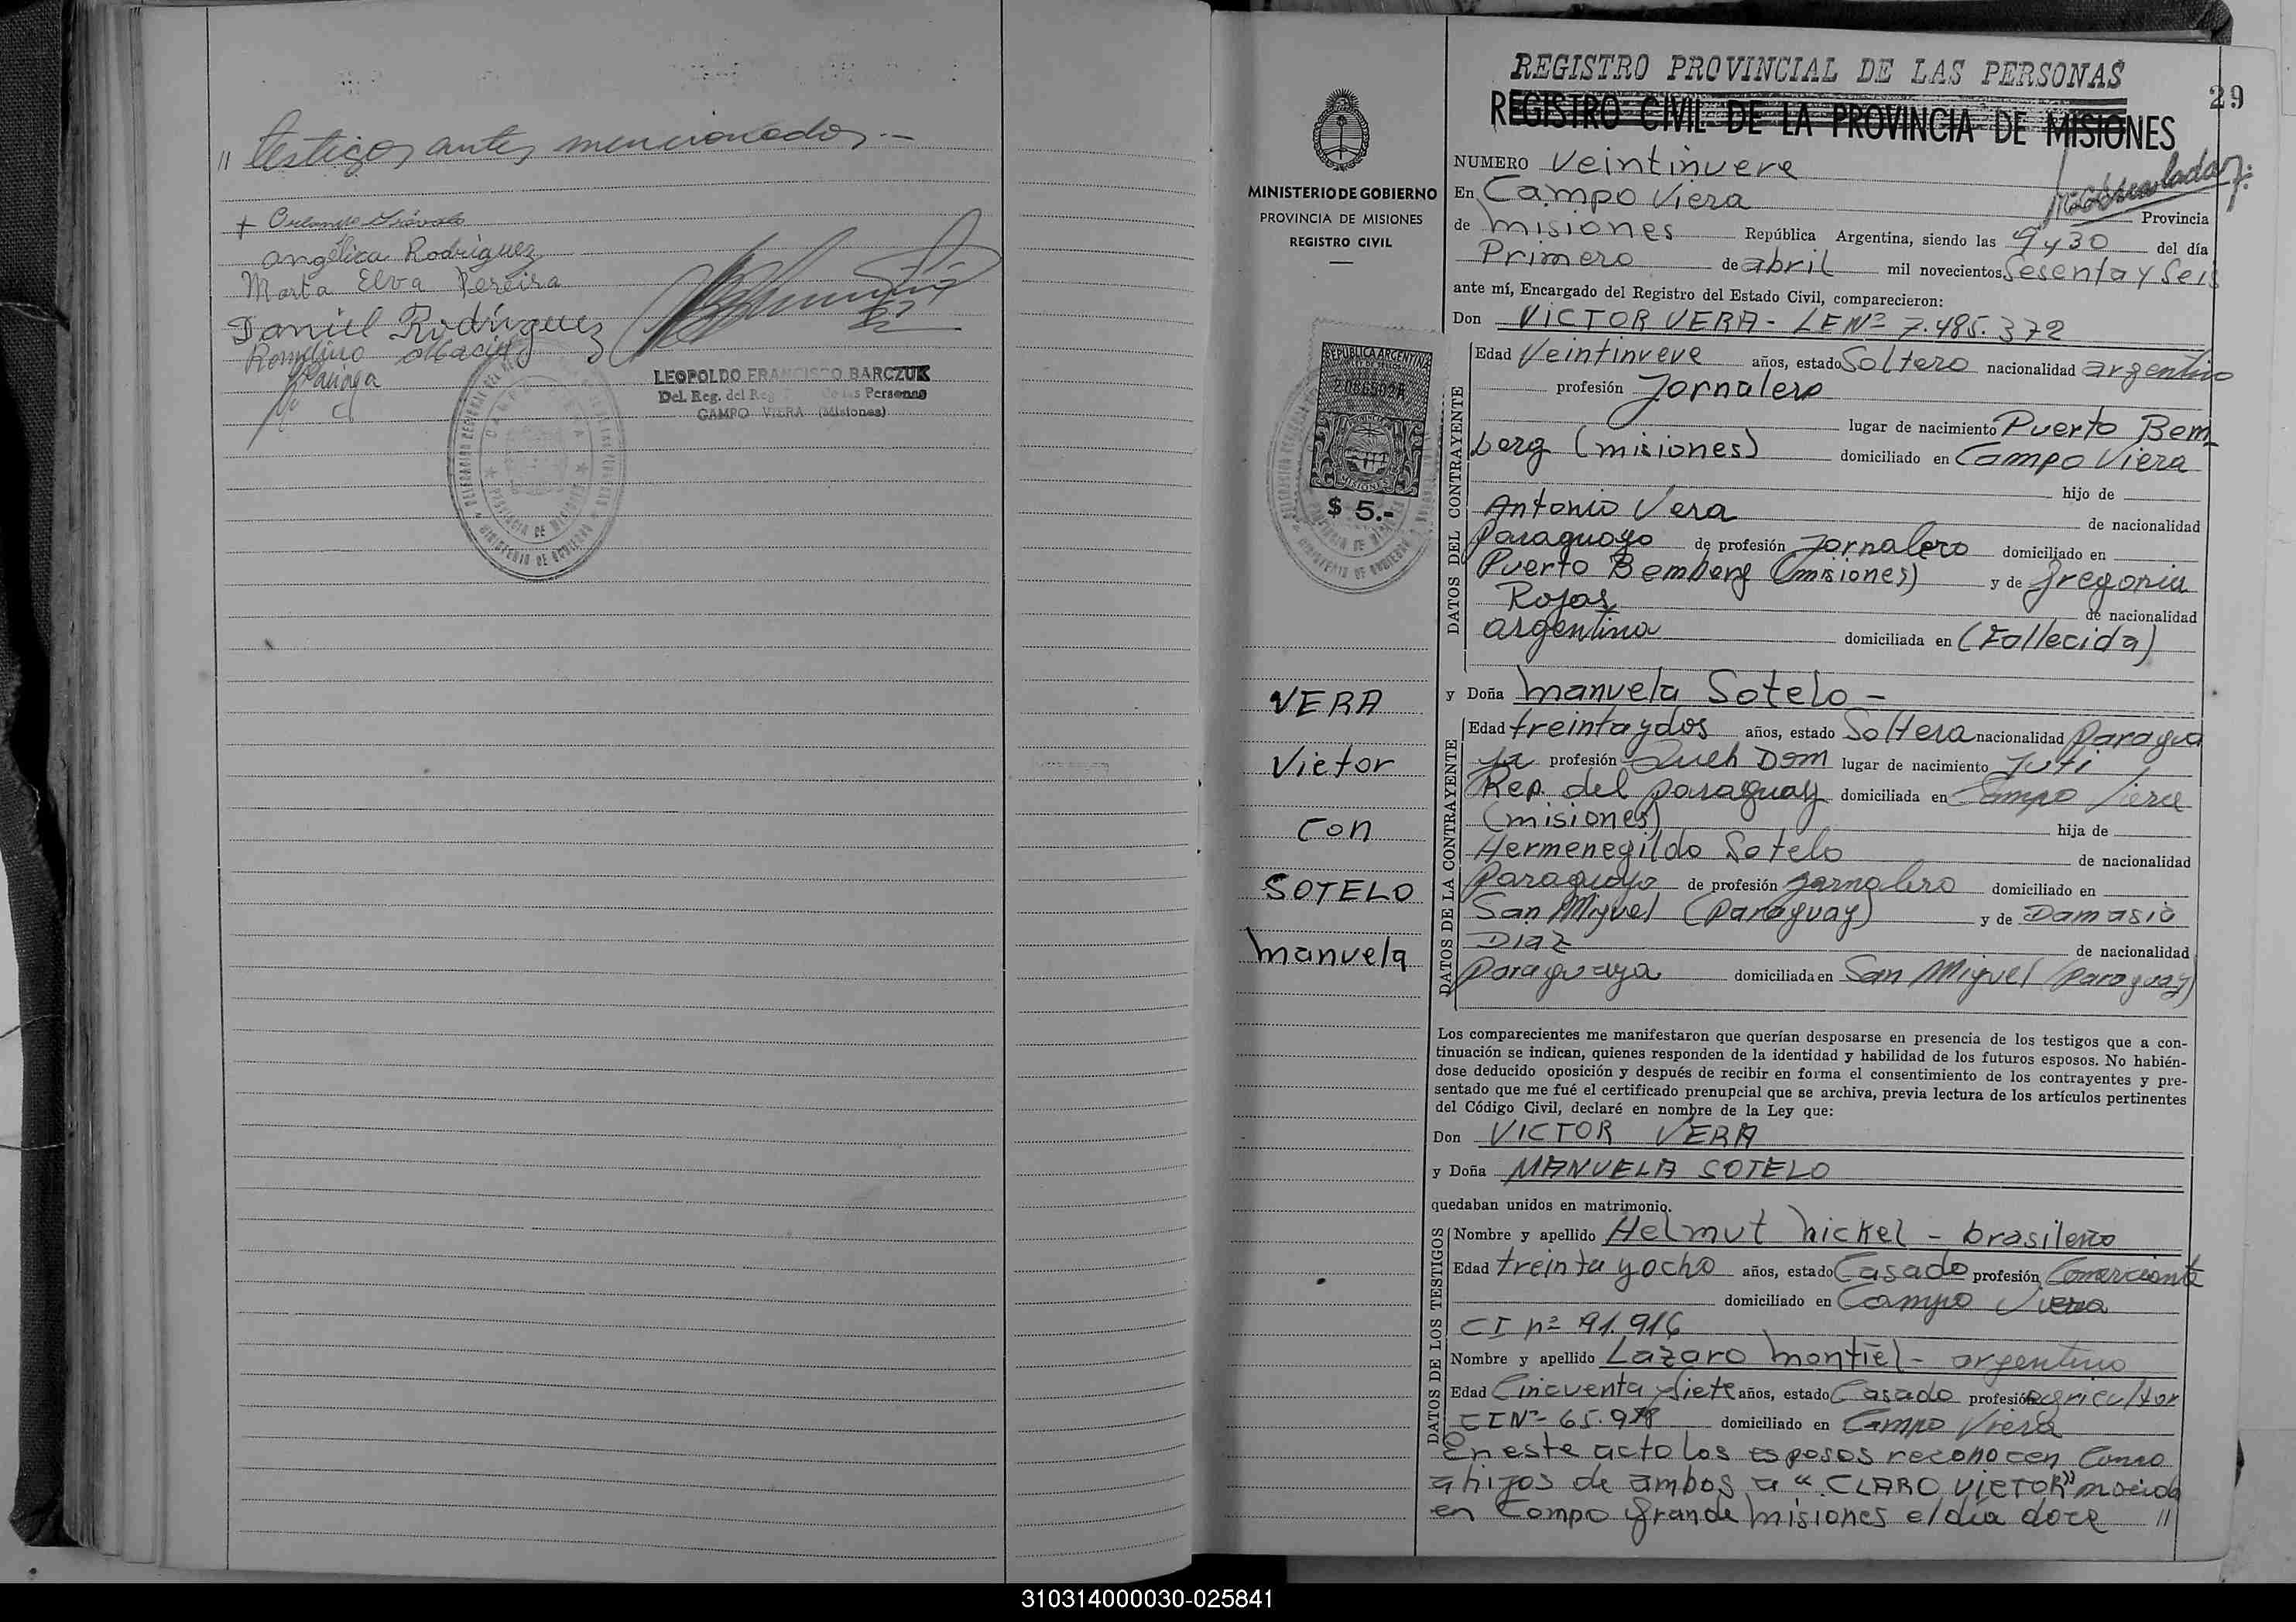 " testigos antes mencionados.—
Angélica Rodriguez
Marta Elva Pereira
Daniel Rodriguez
LEOPOLDO FRANCISCO BARCZUK
Del. Reg. del Reg. de las Personas
CAMPO VIERA (Misiones)
REGISTRO PROVINCIAL DE LAS PERSONAS
29
REGISTRO CIVIL DE LA PROVINCIA DE MISIONES
MINISTERIO DE GOBIERNO
PROVINCIA DE MISIONES
REGISTRO CIVIL
REPUBLICA ARGENTINA
MISIONES
$ 5.-
VERA
Victor
Con
SOTELO
Manuela
NUMERO Veintinueve
En Campo Viera Provincia
de Misiones República Argentina, siendo las 9 y 30 del día
Primero de abril mil novecientos Sesenta y Seis
ante mí, Encargado del Registro del Estado Civil, comparecieron:
Don VICTOR VERA - LE Nº 7.485.372
DATOS DEL CONTRAYENTE
Edad Veintinueve años, estado Soltero nacionalidad argentino
profesión Jornalero
lugar de nacimiento Puerto Bem-
berg (misiones) domiciliado en Campo Viera
hijo de
Antonio Vera de nacionalidad
Paraguayo de profesión Jornalero domiciliado en
Puerto Bemberg (misiones) y de Gregoria
Rojas de nacionalidad
argentina domiciliada en (Fallecida)
y Doña Manuela Sotelo -
DATOS DE LA CONTRAYENTE
Edad treinta y dos años, estado Soltera nacionalidad Paragua
ya profesión Queh Dom lugar de nacimiento Yuti
Rep. del Paraguay domiciliada en Campo Viera
(misiones) hija de
Hermenegildo Sotelo de nacionalidad
Paraguayo de profesión jornalero domiciliado en
San Miguel (Paraguay) y de Damasia
Diaz de nacionalidad
Paraguaya domiciliada en San Miguel (Paraguay)
Los comparecientes me manifestaron que querían desposarse en presencia de los testigos que a con-
tinuación se indican, quienes responden de la identidad y habilidad de los futuros esposos. No habién-
dose deducido oposición y después de recibir en forma el consentimiento de los contrayentes y pre-
sentado que me fué el certificado prenupcial que se archiva, previa lectura de los artículos pertinentes
del Código Civil, declaré en nombre de la Ley que:
Don VICTOR VERA
y Doña MANUELA SOTELO
quedaban unidos en matrimonio.
DATOS DE LOS TESTIGOS
Nombre y apellido Helmut Nickel - brasileño
Edad treinta y ocho años, estado Casado profesión Comerciante
domiciliado en Campo Viera
CI nº 91.916
Nombre y apellido Lazaro Montiel - argentino
Edad Cincuenta y siete años, estado Casado profesión agricultor
CI Nº 65.978 domiciliado en Campo Viera
En este acto los esposos reconocen Como
a hijos de ambos a "CLARO VICTOR" nacido
en Campo Grande Misiones el día doce "
310314000030-025841